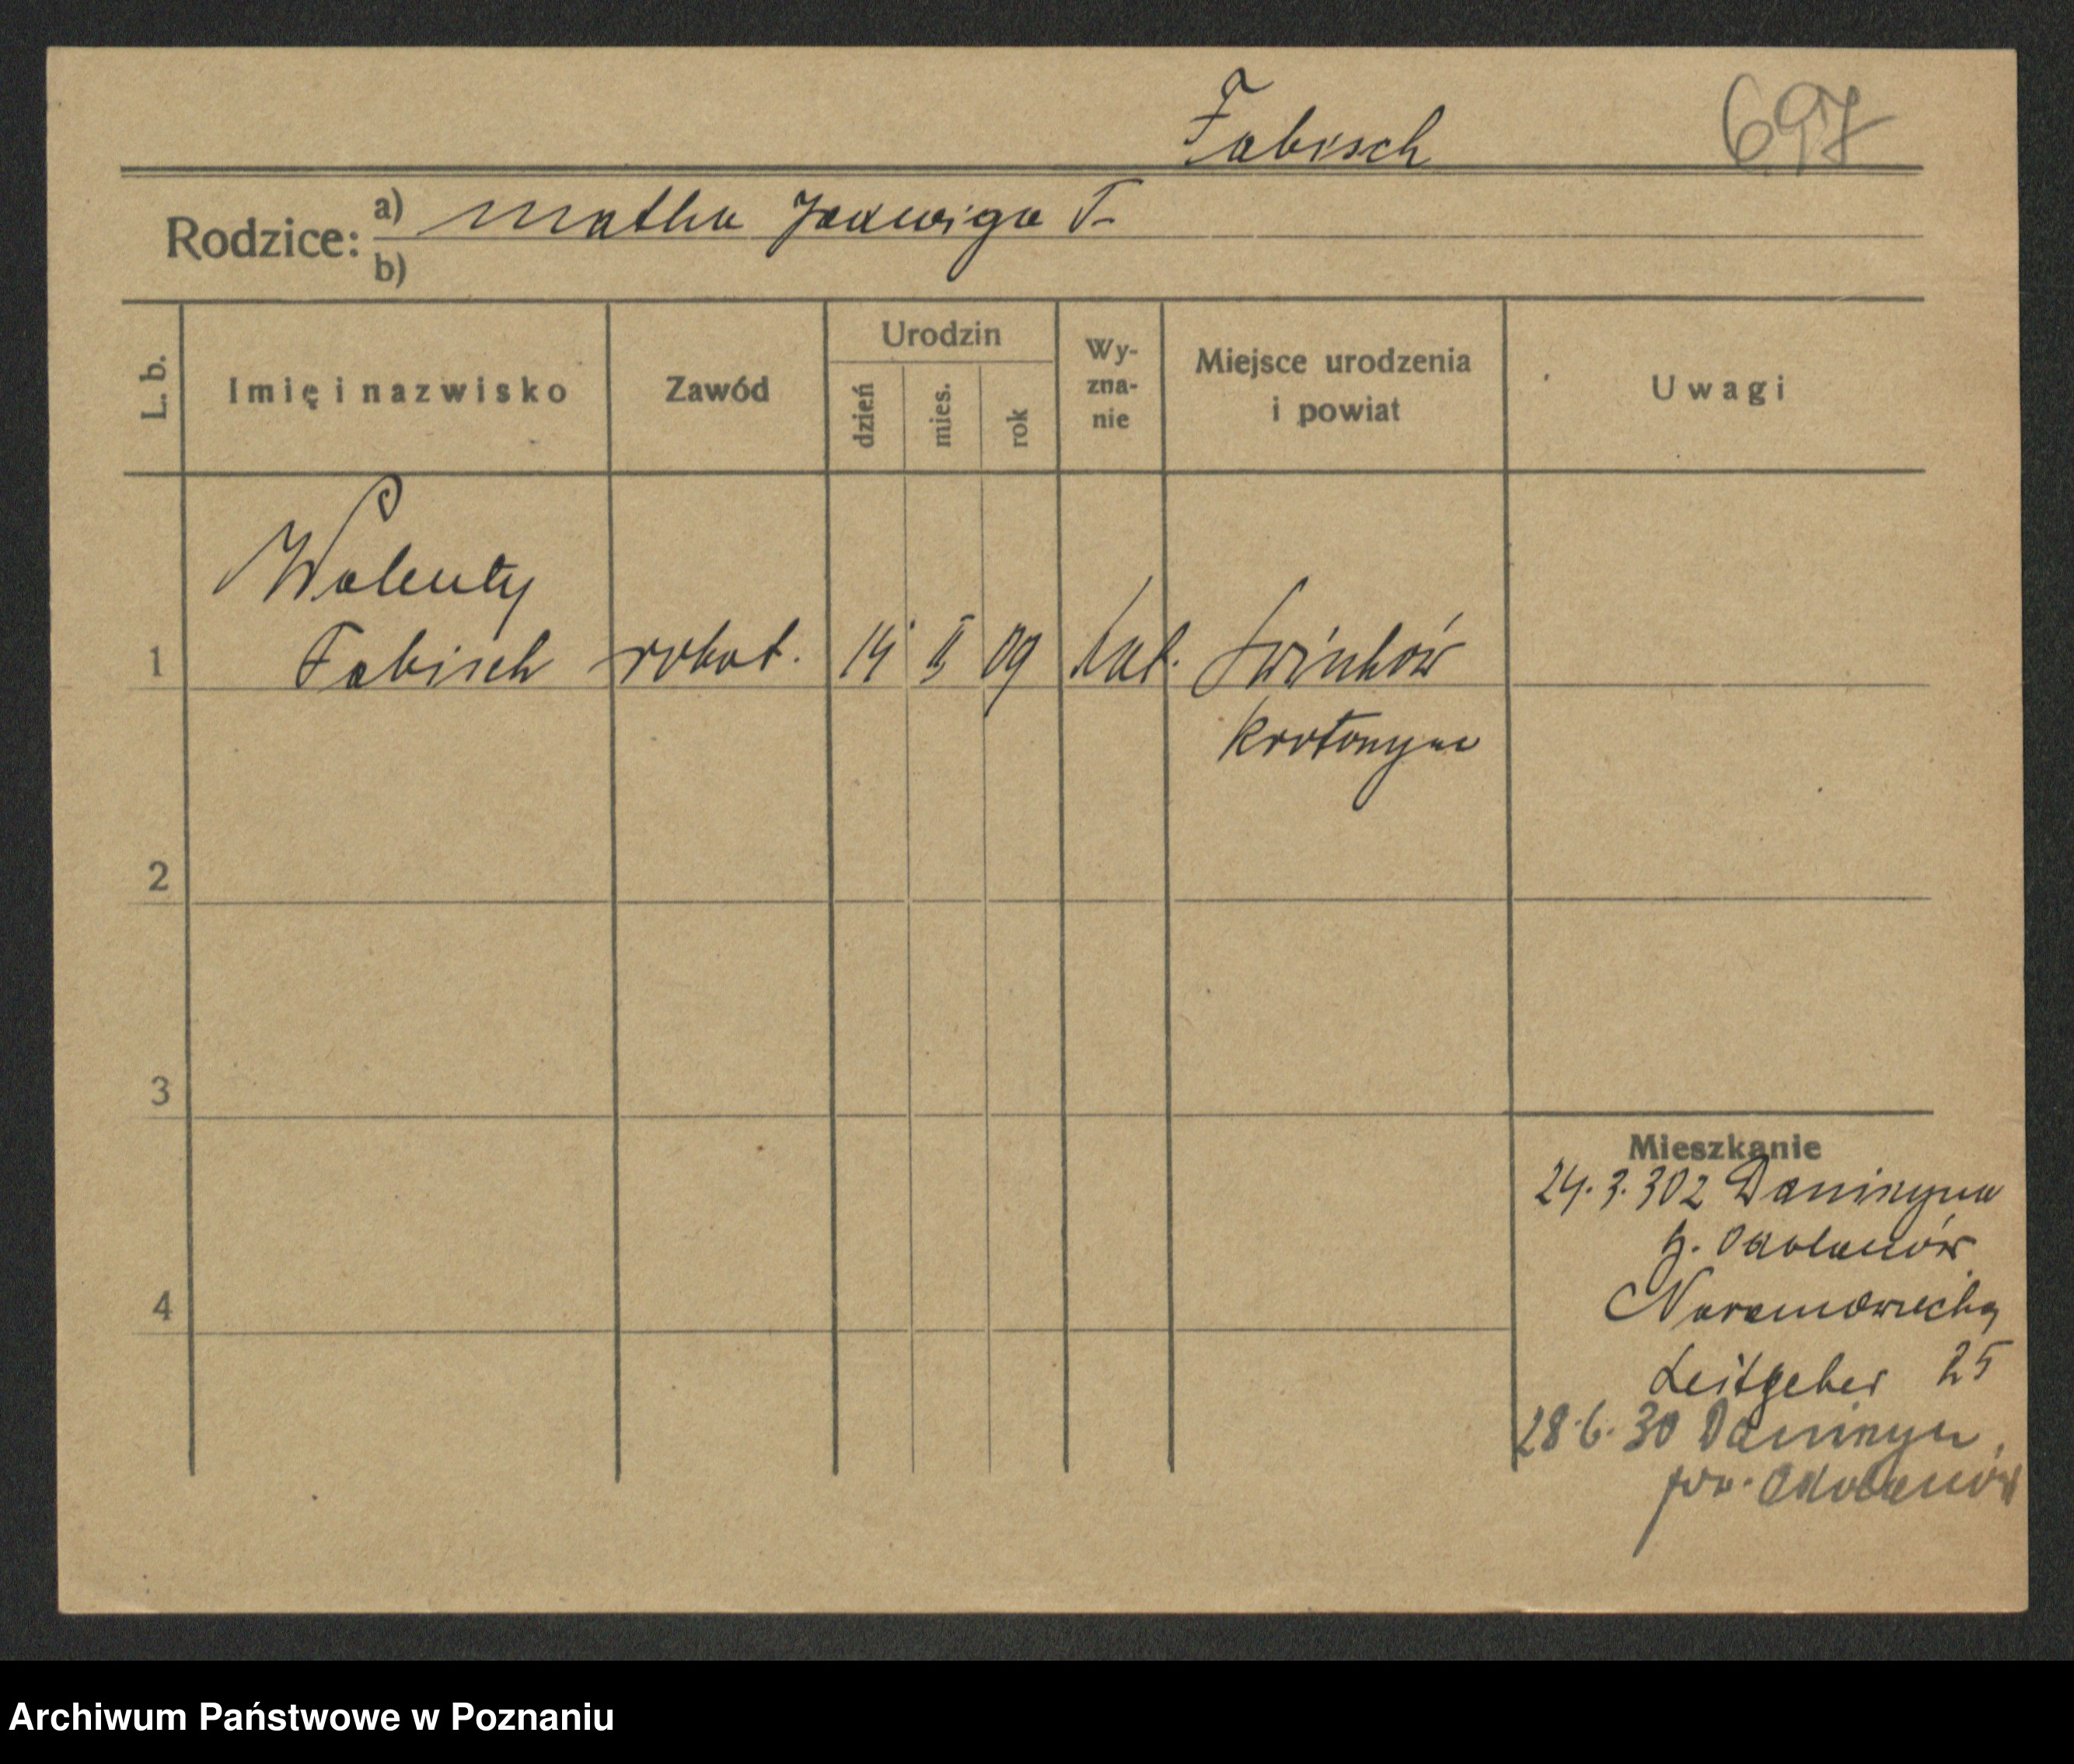 Fabisch 697
Rodzice: a) matka Jadwiga F.
b)
L. b. Imię i nazwisko Zawód Urodzin dzień mies. rok Wy-zna-nie Miejsce urodzenia i powiat Uwagi
Walenty
1 Fabisch robot. 14 II 09 kat. Świnków
Krotoszyn
2
3
Mieszkanie
24.3.30 z Daniszyna
p. Odolanów
4 Naramowicką
Leitgeber 25
28.6.30 Daniszyn
pow. Odolanów
Archiwum Państwowe w Poznaniu